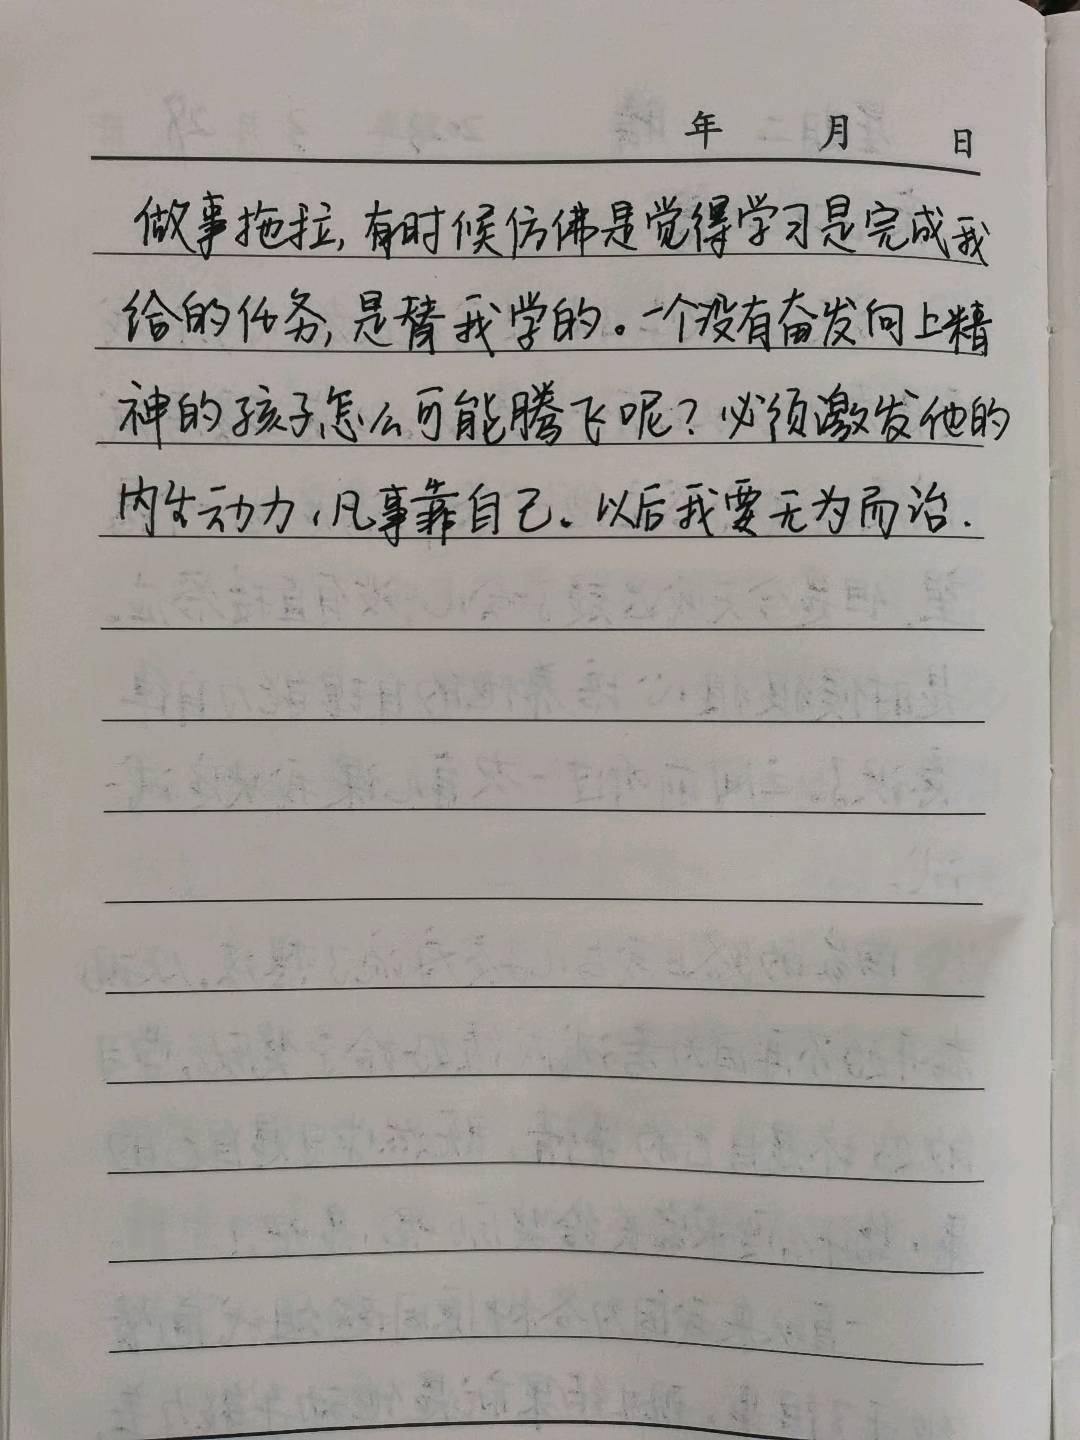 年 月 日
做事拖拉,有时候仿佛是觉得学习是完成我
给的任务,是替我学的。一个没有奋发向上精
神的孩子怎么可能腾飞呢?必须激发他的
内生动力,凡事靠自己。以后我要无为而治.